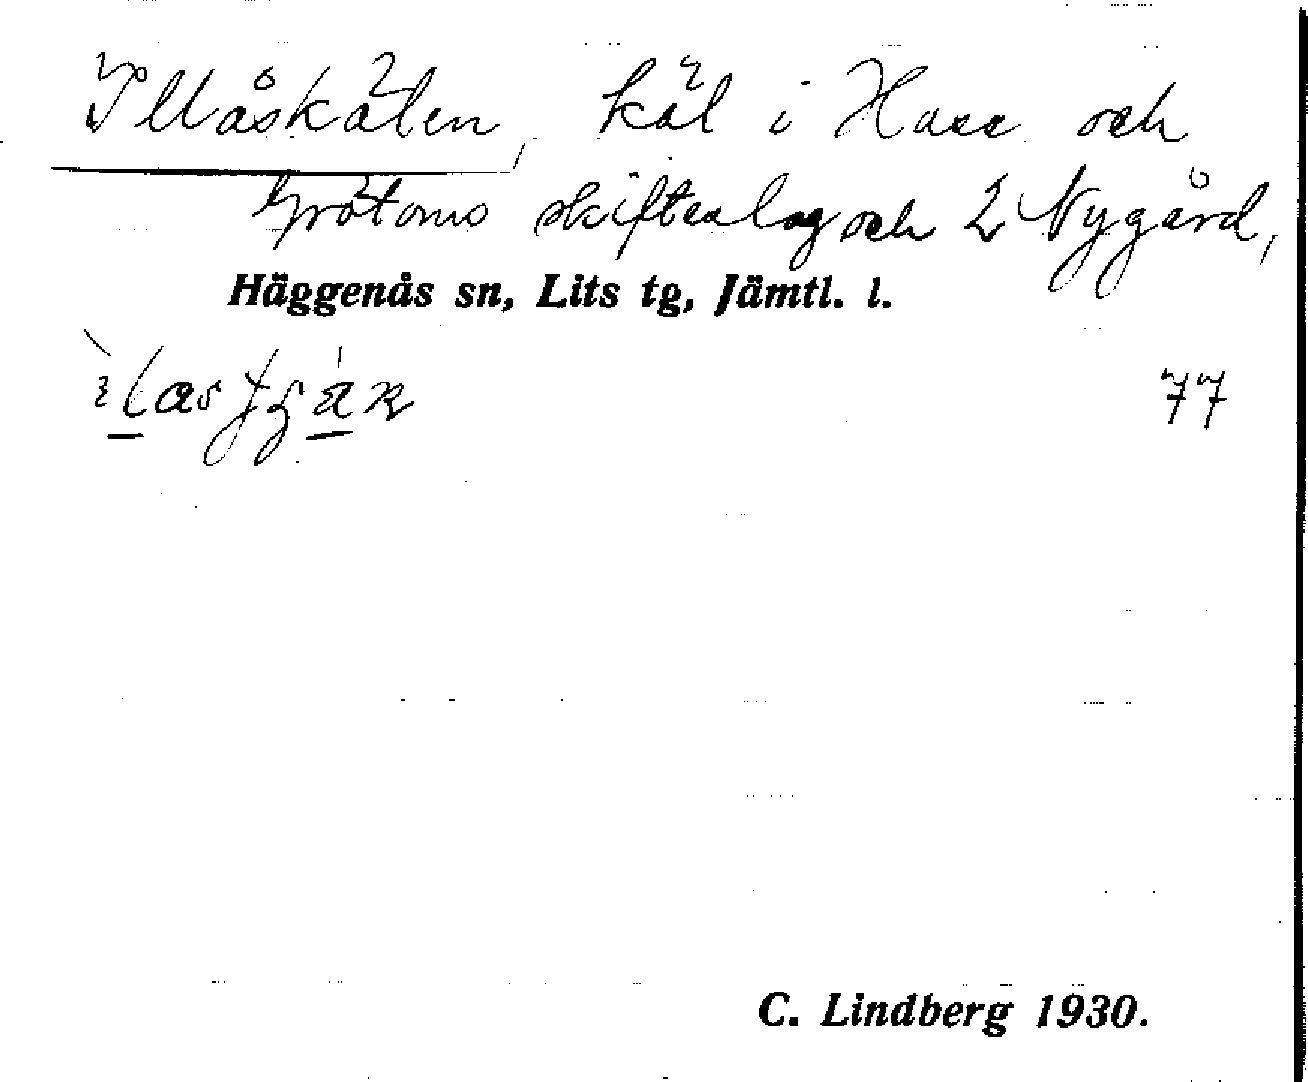 Illåskälen, käl i Hass och
Grötoms skifteslag och 2 Nygård,
Häggenås sn, Lits tg, Jämtl. l.
77
C. Lindberg 1930.